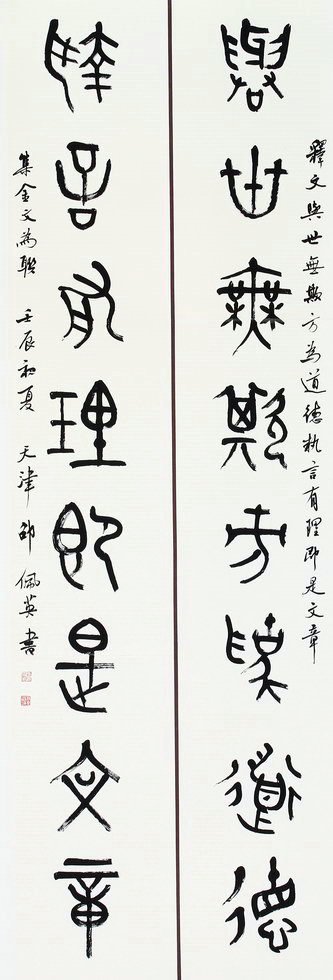 釋文與世無欺方為道德執言有理即是文章
與世無欺方為道德
執言有理即是文章
集金文為聯 壬辰初夏 天津邵佩英書